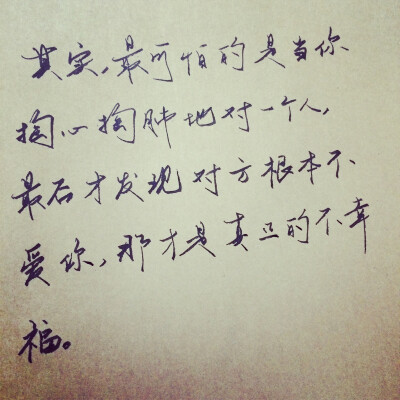 其实,最可怕的是当你
掏心掏肺地对一个人,
最后才发现对方根本不
爱你,那才是真正的不幸
福。